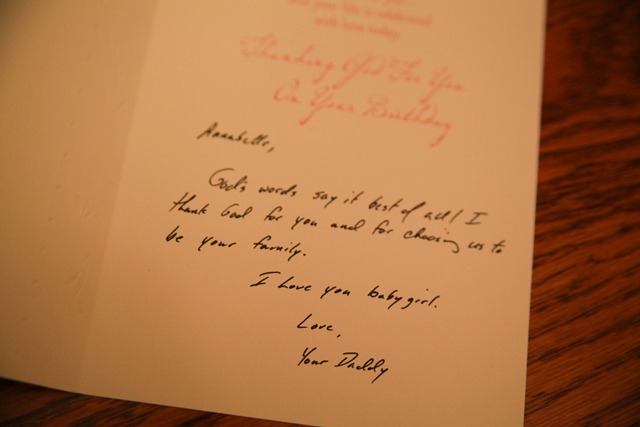 your life is celebrated
with love today.
Thanking God For You
On Your Birthday
Annabelle,
God's words say it best of all! I
thank God for you and for choosing us to
be your family.
I love you baby girl.
Love,
Your Daddy